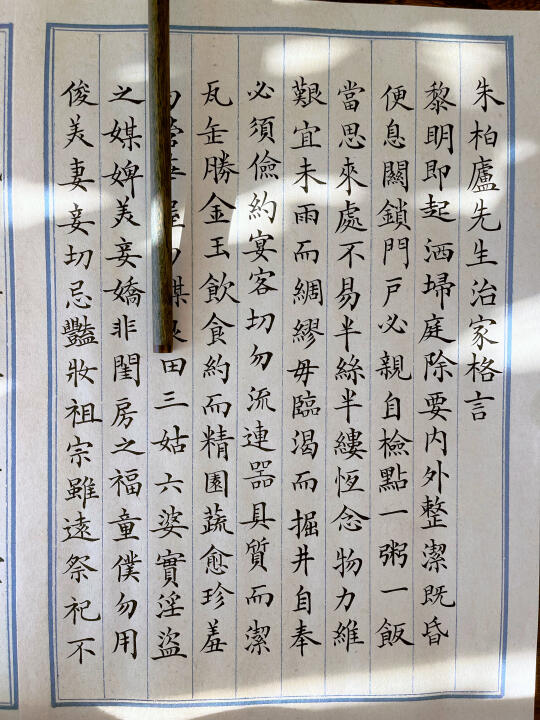 朱柏廬先生治家格言
黎明即起洒埽庭除要內外整潔既昏
便息關鎖門戶必親自檢點一粥一飯
當思來處不易半絲半縷恆念物力維
艱宜未雨而綢繆毋臨渴而掘井自奉
必須儉約宴客切勿流連器具質而潔
瓦缶勝金玉飲食約而精園蔬愈珍羞
營屋勿謀田三姑六婆實淫盜
之媒婢美妾嬌非閨房之福童僕勿用
俊美妻妾切忌豔妝祖宗雖遠祭祀不